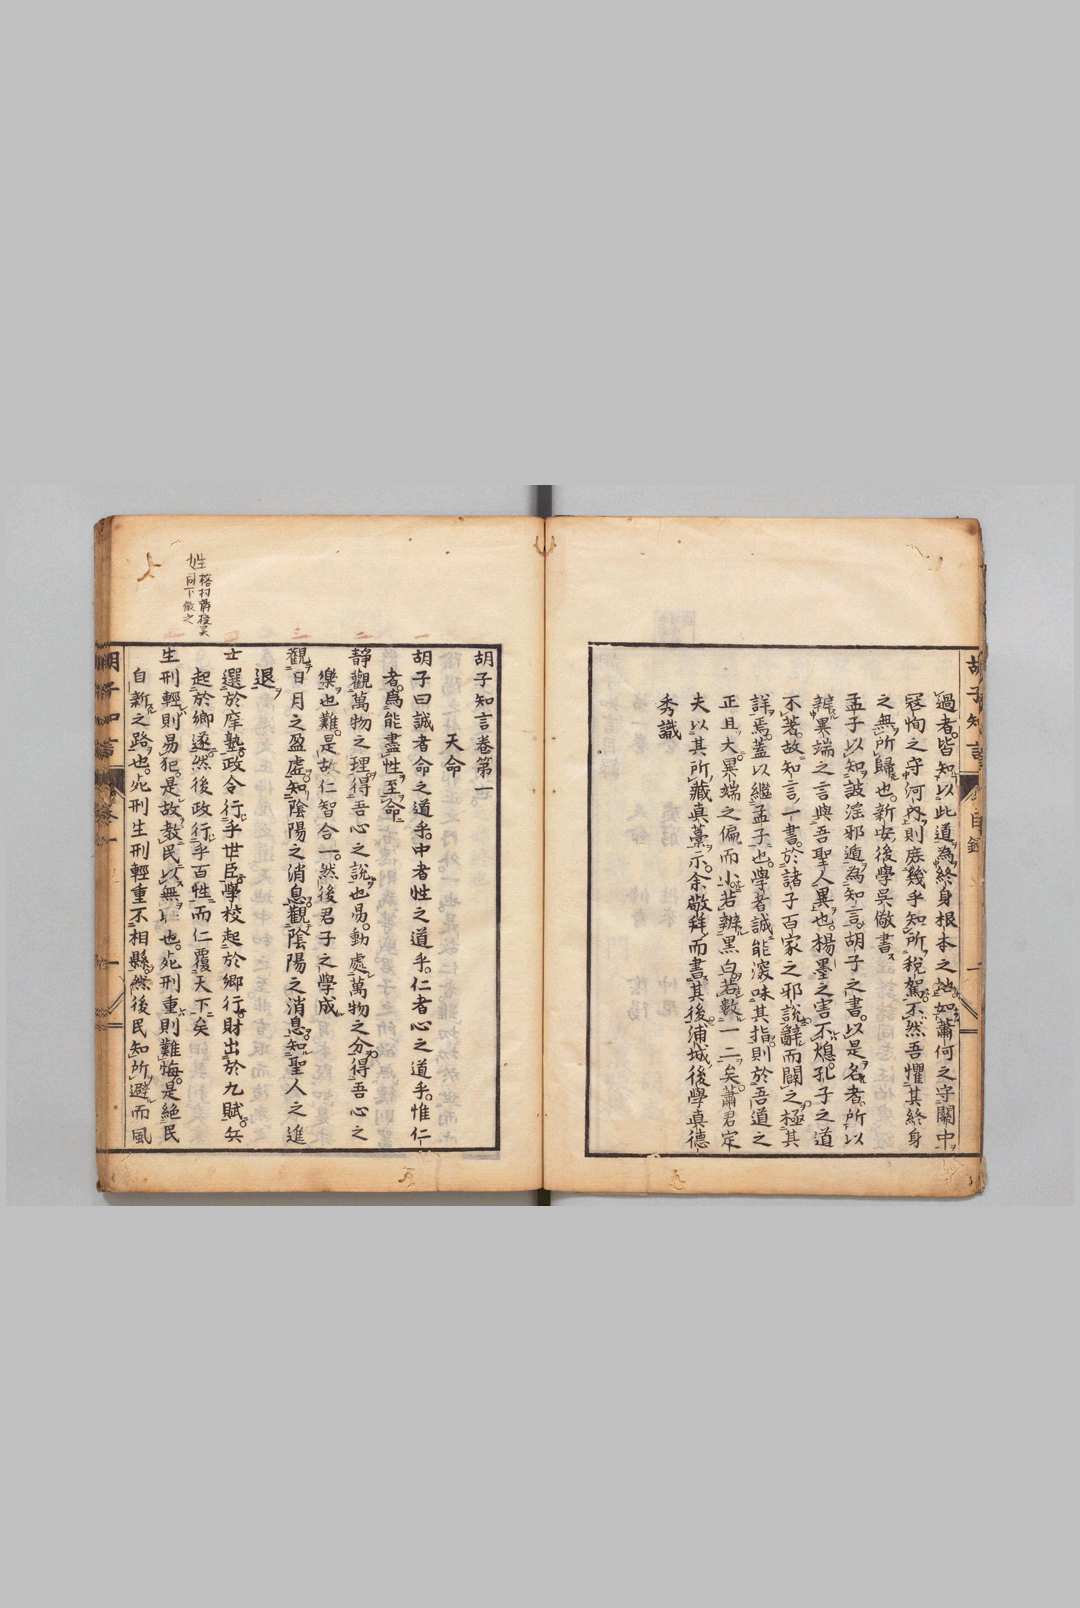 過者皆知以此道為終身根本之地如蕭何之守關中
寇恂之守河內則庶幾乎知所稅駕不然吾懼其終身
之無所歸也新安後學吳儆書
孟子以知詖淫邪遁為知言胡子之書以是名者所以
辨異端之言與吾聖人異也楊墨之害不熄孔子之道
不著故知言一書於諸子百家之邪說辭而闢之極其
詳焉蓋以繼孟子也學者誠能深味其指則於吾道之
正且大異端之偏而小若辨黑白若數一二矣蕭君定
夫以其所藏真藁示余敬拜而書其後浦城後學真德
秀識
胡子知言卷第一
天命
一
胡子曰誠者命之道乎中者性之道乎仁者心之道乎惟仁
者爲能盡性至命
二
靜觀萬物之理得吾心之說也易動處萬物之分得吾心之
樂也難是故仁智合一然後君子之學成
三
觀日月之盈虛知陰陽之消息觀陰陽之消息知聖人之進
退
士選於庠塾政令行乎世臣學校起於鄉行財出於九賦兵
起於鄉遂然後政行乎百姓而仁覆天下矣
生刑輕則易犯是故教民以無也死刑重則難悔是絕民
自新之路也死刑生刑輕重不相縣然後民知所避而風
姓
同下倣之
胡子知言